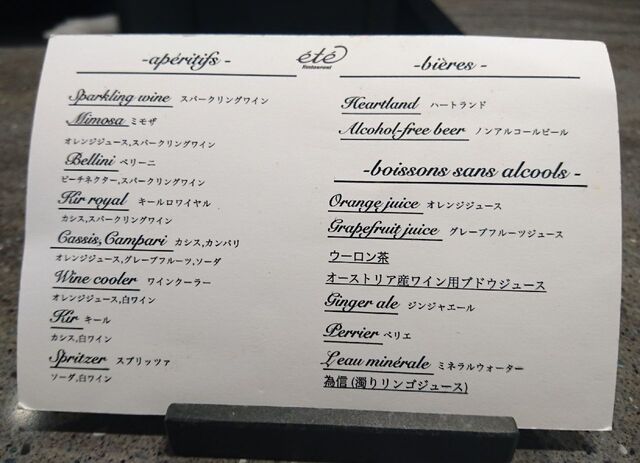 -apéritifs-
Sparkling wine スパークリングワイン
Mimosa ミモザ
オレンジジュース,スパークリングワイン
Bellini ベリーニ
ピーチネクター,スパークリングワイン
Kir royal キールロワイヤル
カシス,スパークリングワイン
Cassis, Campari カシス,カンパリ
オレンジジュース,グレープフルーツ,ソーダ
Wine cooler ワインクーラー
オレンジジュース,白ワイン
Kir キール
カシス,白ワイン
Spritzer スプリッツァ
ソーダ,白ワイン
été
Restaurant
-bières-
Heartland ハートランド
Alcohol-free beer ノンアルコールビール
-boissons sans alcools-
Orange juice オレンジジュース
Grapefruit juice グレープフルーツジュース
ウーロン茶
オーストリア産ワイン用ブドウジュース
Ginger ale ジンジャエール
Perrier ペリエ
L'eau minérale ミネラルウォーター
為信 (濁りリンゴジュース)